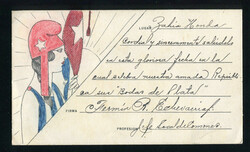 LUGAR Bahía Honda
Cordial y sinceramente saludolo
en esta gloriosa fecha en la
cual celebra nuestra amada República
sus "Bodas de Plata"
FIRMA Fermín R. Echevarría
PROFESION Jefe Local de Comunes.